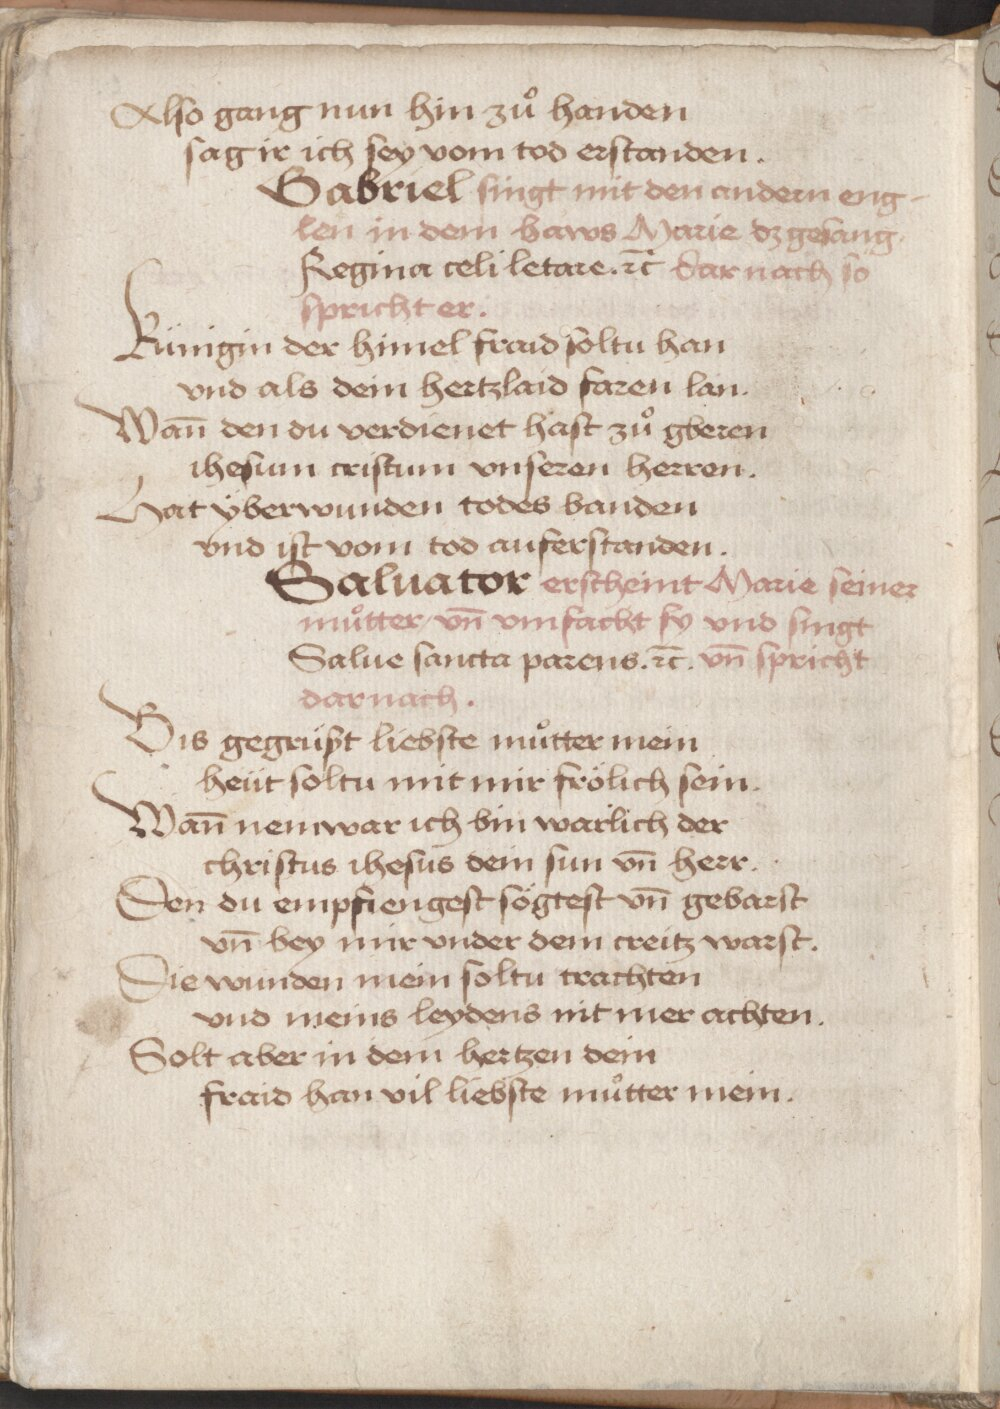 Also gang nun hin zů handen
sag ir ich sey vom tod erstanden.
Gabriel singt mit den andern eng-
len in dem haws Marie dz gesang.
Regina celi letare. ⁊c̄ dar nach so
spricht er.
Künigin der himel fraid soltu han
vnd als dein hertzlaid faren lan.
Wan̄ den du verdienet hast zů gberen
ihesum cristum vnseren herren.
Hat yberwunden todes banden
vnd ist vom tod auferstanden.
Saluator erscheint Marie seiner
můtter vn̄ vmfacht sy vnd singt
Salue sancta parens. ⁊c̄. vn̄ spricht
darnach.
Bis gegrüßt liebste můtter mein
heüt soltu mit mir frölich sein.
Wan̄ nemwar ich bin warlich der
christus ihesus dein sun vn̄ herr.
Den du empfiengest sögtest vn̄ gebarst
vn̄ bey mir vnder dem creitz warst.
Die wunden mein soltu trachten
vnd meins leydens nit mer achten.
Solt aber in dem hertzen dein
fraid han vil liebste můtter mein.